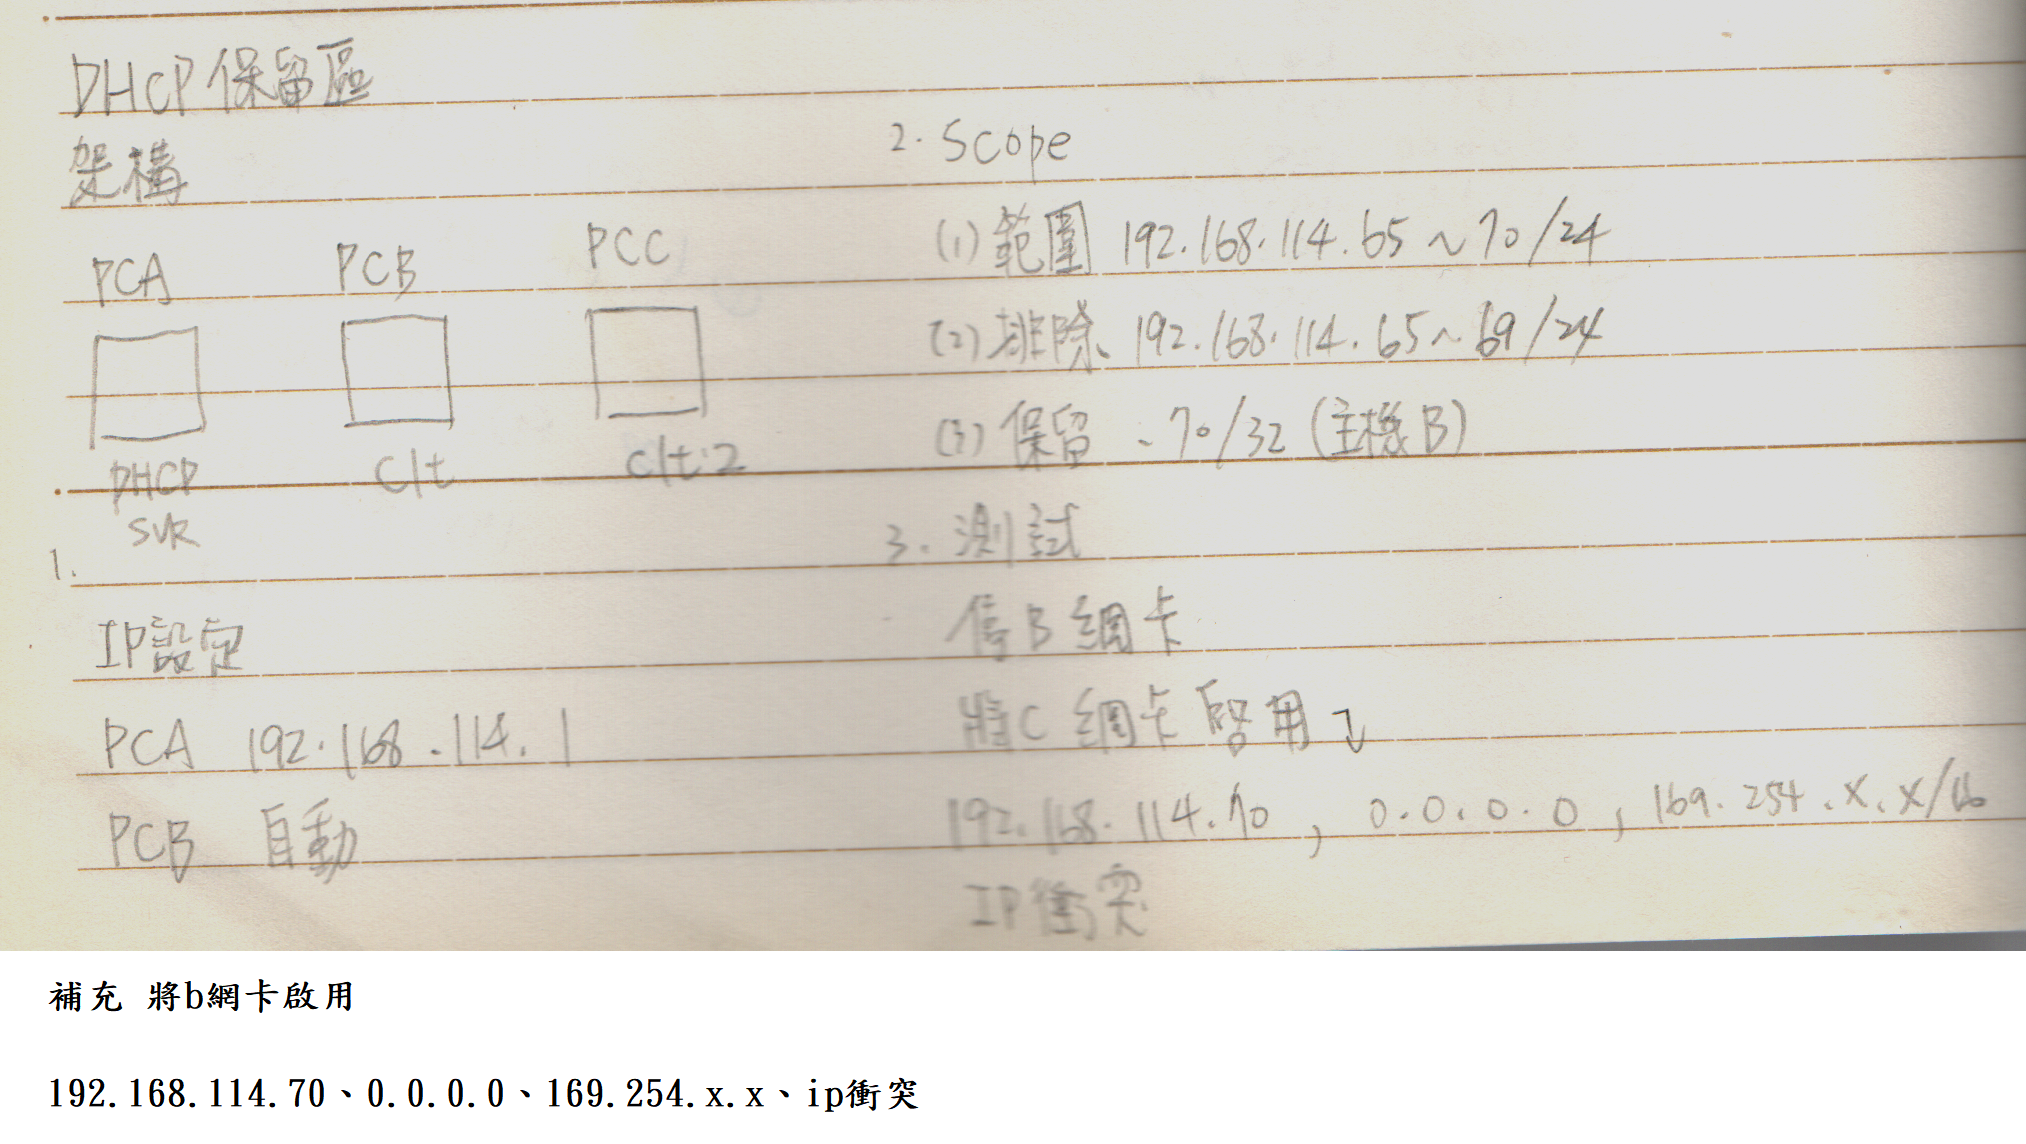 DHCP保留區
架構
PCA PCB PCC
DHCP SVR clt clt:2
1.
IP設定
PCA 192.168.114.1
PCB 自動
2. Scope
(1) 範圍 192.168.114.65~70/24
(2) 排除 192.168.114.65~69/24
(3) 保留 .70/32 (主機B)
3. 測試
停B網卡
將C網卡啟用↴
192.168.114.70, 0.0.0.0, 169.254.x.x/16
IP衝突
補充 將b網卡啟用
192.168.114.70、0.0.0.0、169.254.x.x、ip衝突